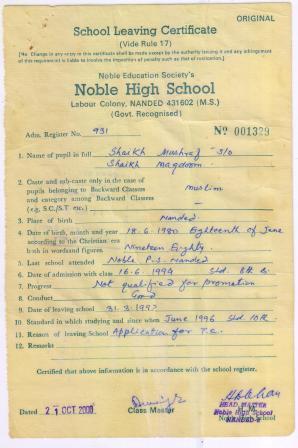 ORIGINAL
School Leaving Certificate
(Vide Rule 17)
[No Change in any entry in this certificate shall be made except by the authority issuing it and any infringement
of this requirement is liable to involve the imposition of penalty such as that of rustication.]
Noble Education Society's
Noble High School
Labour Colony, NANDED 431602 (M.S.)
(Govt. Recognised)
Adm. Register No. 931 No 001329
1. Name of pupil in full Shaikh Musheaf S/o
Shaikh Maqdoom.
2. Caste and sub-caste only in the case of
pupils belonging to Backward Classes muslim
and category among Backward Classes
(e.g., S.C./S.T etc.) —
3. Place of birth Nanded
4. Date of birth, month and year 18.6.1980 Eighteenth of June
according to the Christian era
birth in words and figures Nineteen Eighty.
5. Last school attended Noble P.S. Nanded
6. Date of admission with class 16.6.1994 Std. 8th B.
7. Progress Not qualified for promotion
8. Conduct Good
9. Date of leaving school 31.3.1997
10. Standard in which studying and since when June 1996 Std. 10th
11. Reason of leaving School Application for T.C.
12. Remarks
Certified that above information is in accordance with the school register.
Dated 21 OCT 2000 Class Master
HEAD MASTER
Noble High School
NANDED